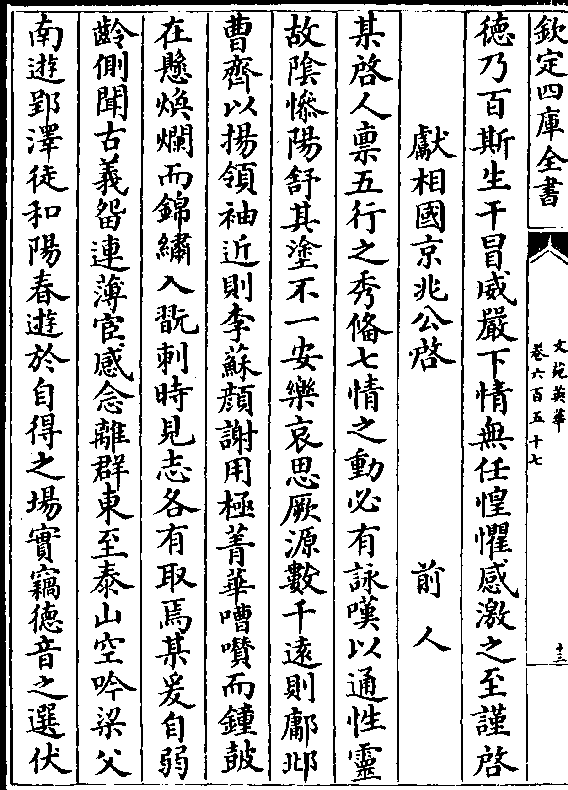 欽定四庫全書
文苑英華
卷六百五十七
十三
德乃百斯生干冒威嚴下情無任惶懼感激之至謹啓
獻相國京兆公啓　前人
某啓人禀五行之秀俻七情之動必有詠嘆以通性靈
故陰慘陽舒其塗不一安樂哀思厥源數千逺則鄘邶
曹齊以揚領袖近則李蘇顔謝用極菁華嘈囋而鍾鼓
在懸煥爛而錦繡入翫刺時見志各有取焉某爰自弱
齡側聞古義留連薄宦感念離群東至泰山空吟梁父
南遊郢澤徒和陽春遊於自得之塲實竊德音之選伏